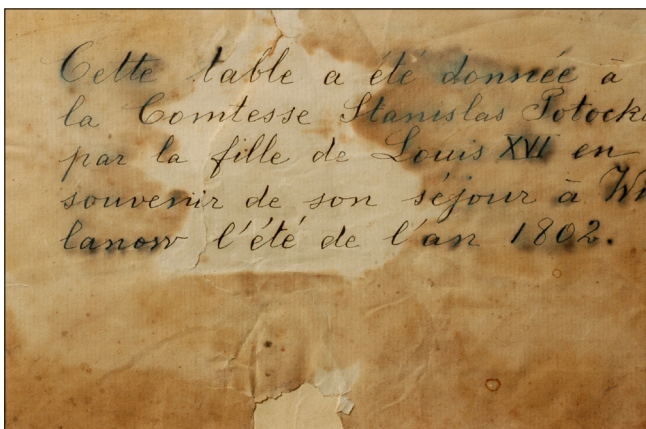 Cette table a été donnée à
la Comtesse Stanislas Potocka
par la fille de Louis XVI en
souvenir de son séjour à Wi
lanow l'été de l'an 1802.